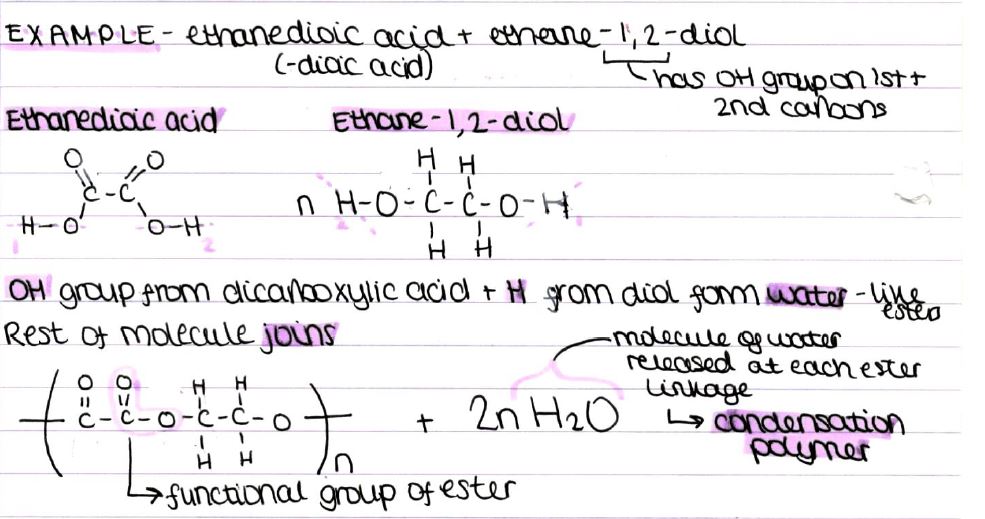 EXAMPLE - ethanedioic acid + ethane-1,2-diol
(-dioic acid)
has OH group on 1st +
2nd carbons
Ethanedioic acid
Ethane-1,2-diol
O O
C - C
H-O O-H
H H
n H-O-C-C-O-H
H H
OH group from dicarboxylic acid + H from diol form water - like
esters
Rest of molecule joins
molecule of water
released at each ester
linkage
O O H H
( C - C - O - C - C - O )n + 2n H2O
H H
↳ condensation
polymer
functional group of ester